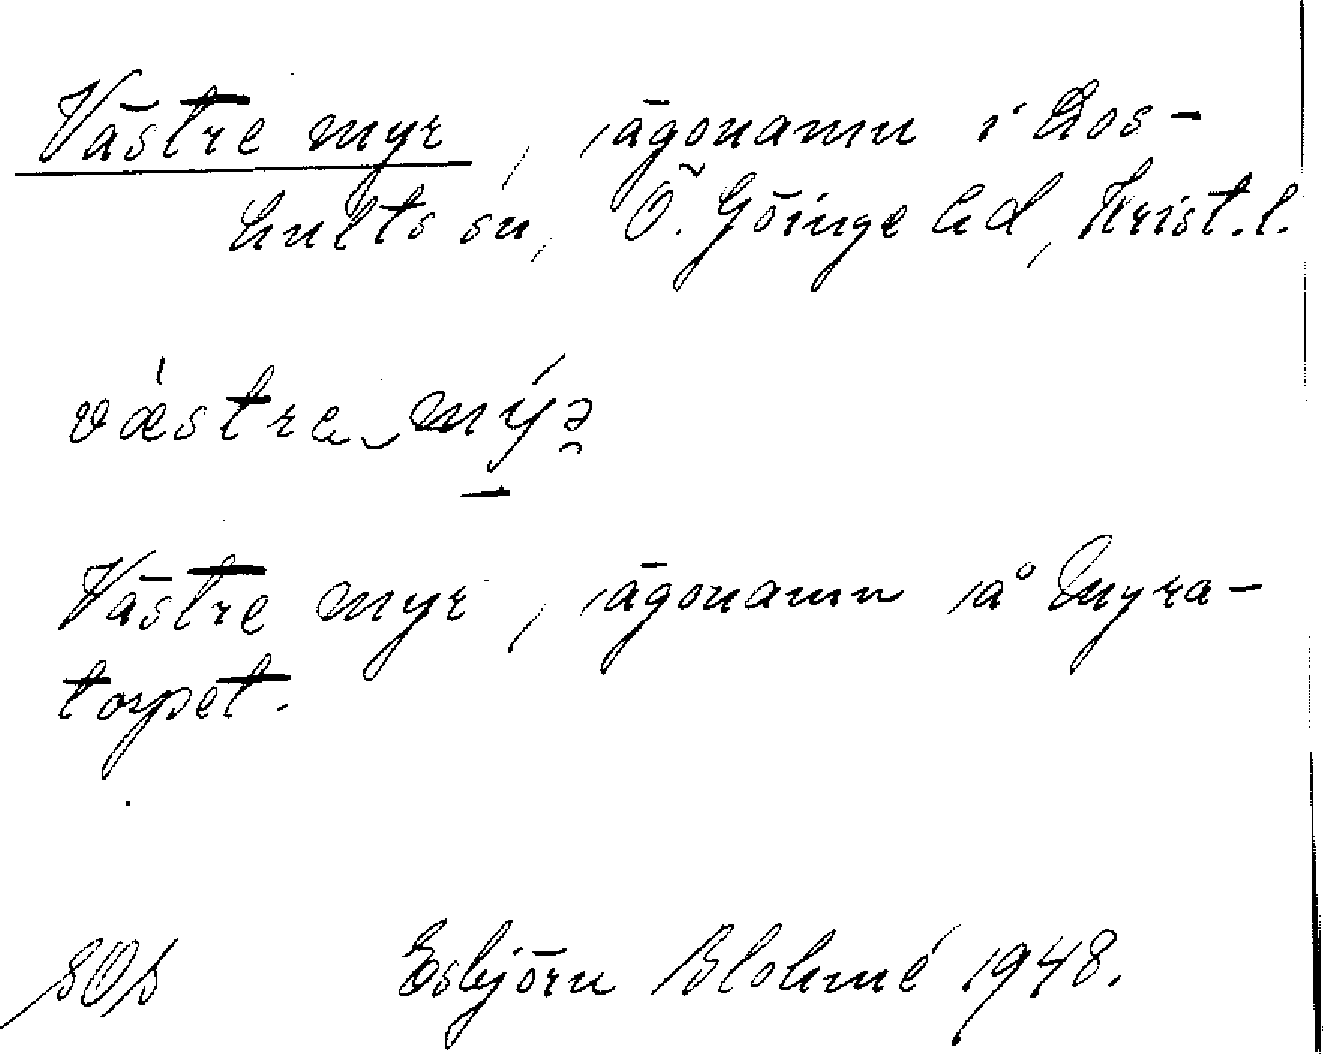 Västre myr, ägonamn i Los-
hults sn, Ö. Göinge hd, Krist. l.
væstra mýə
Västre myr, ägonamn å Myra-
torpet.
Esbjörn Blohmé 1948.